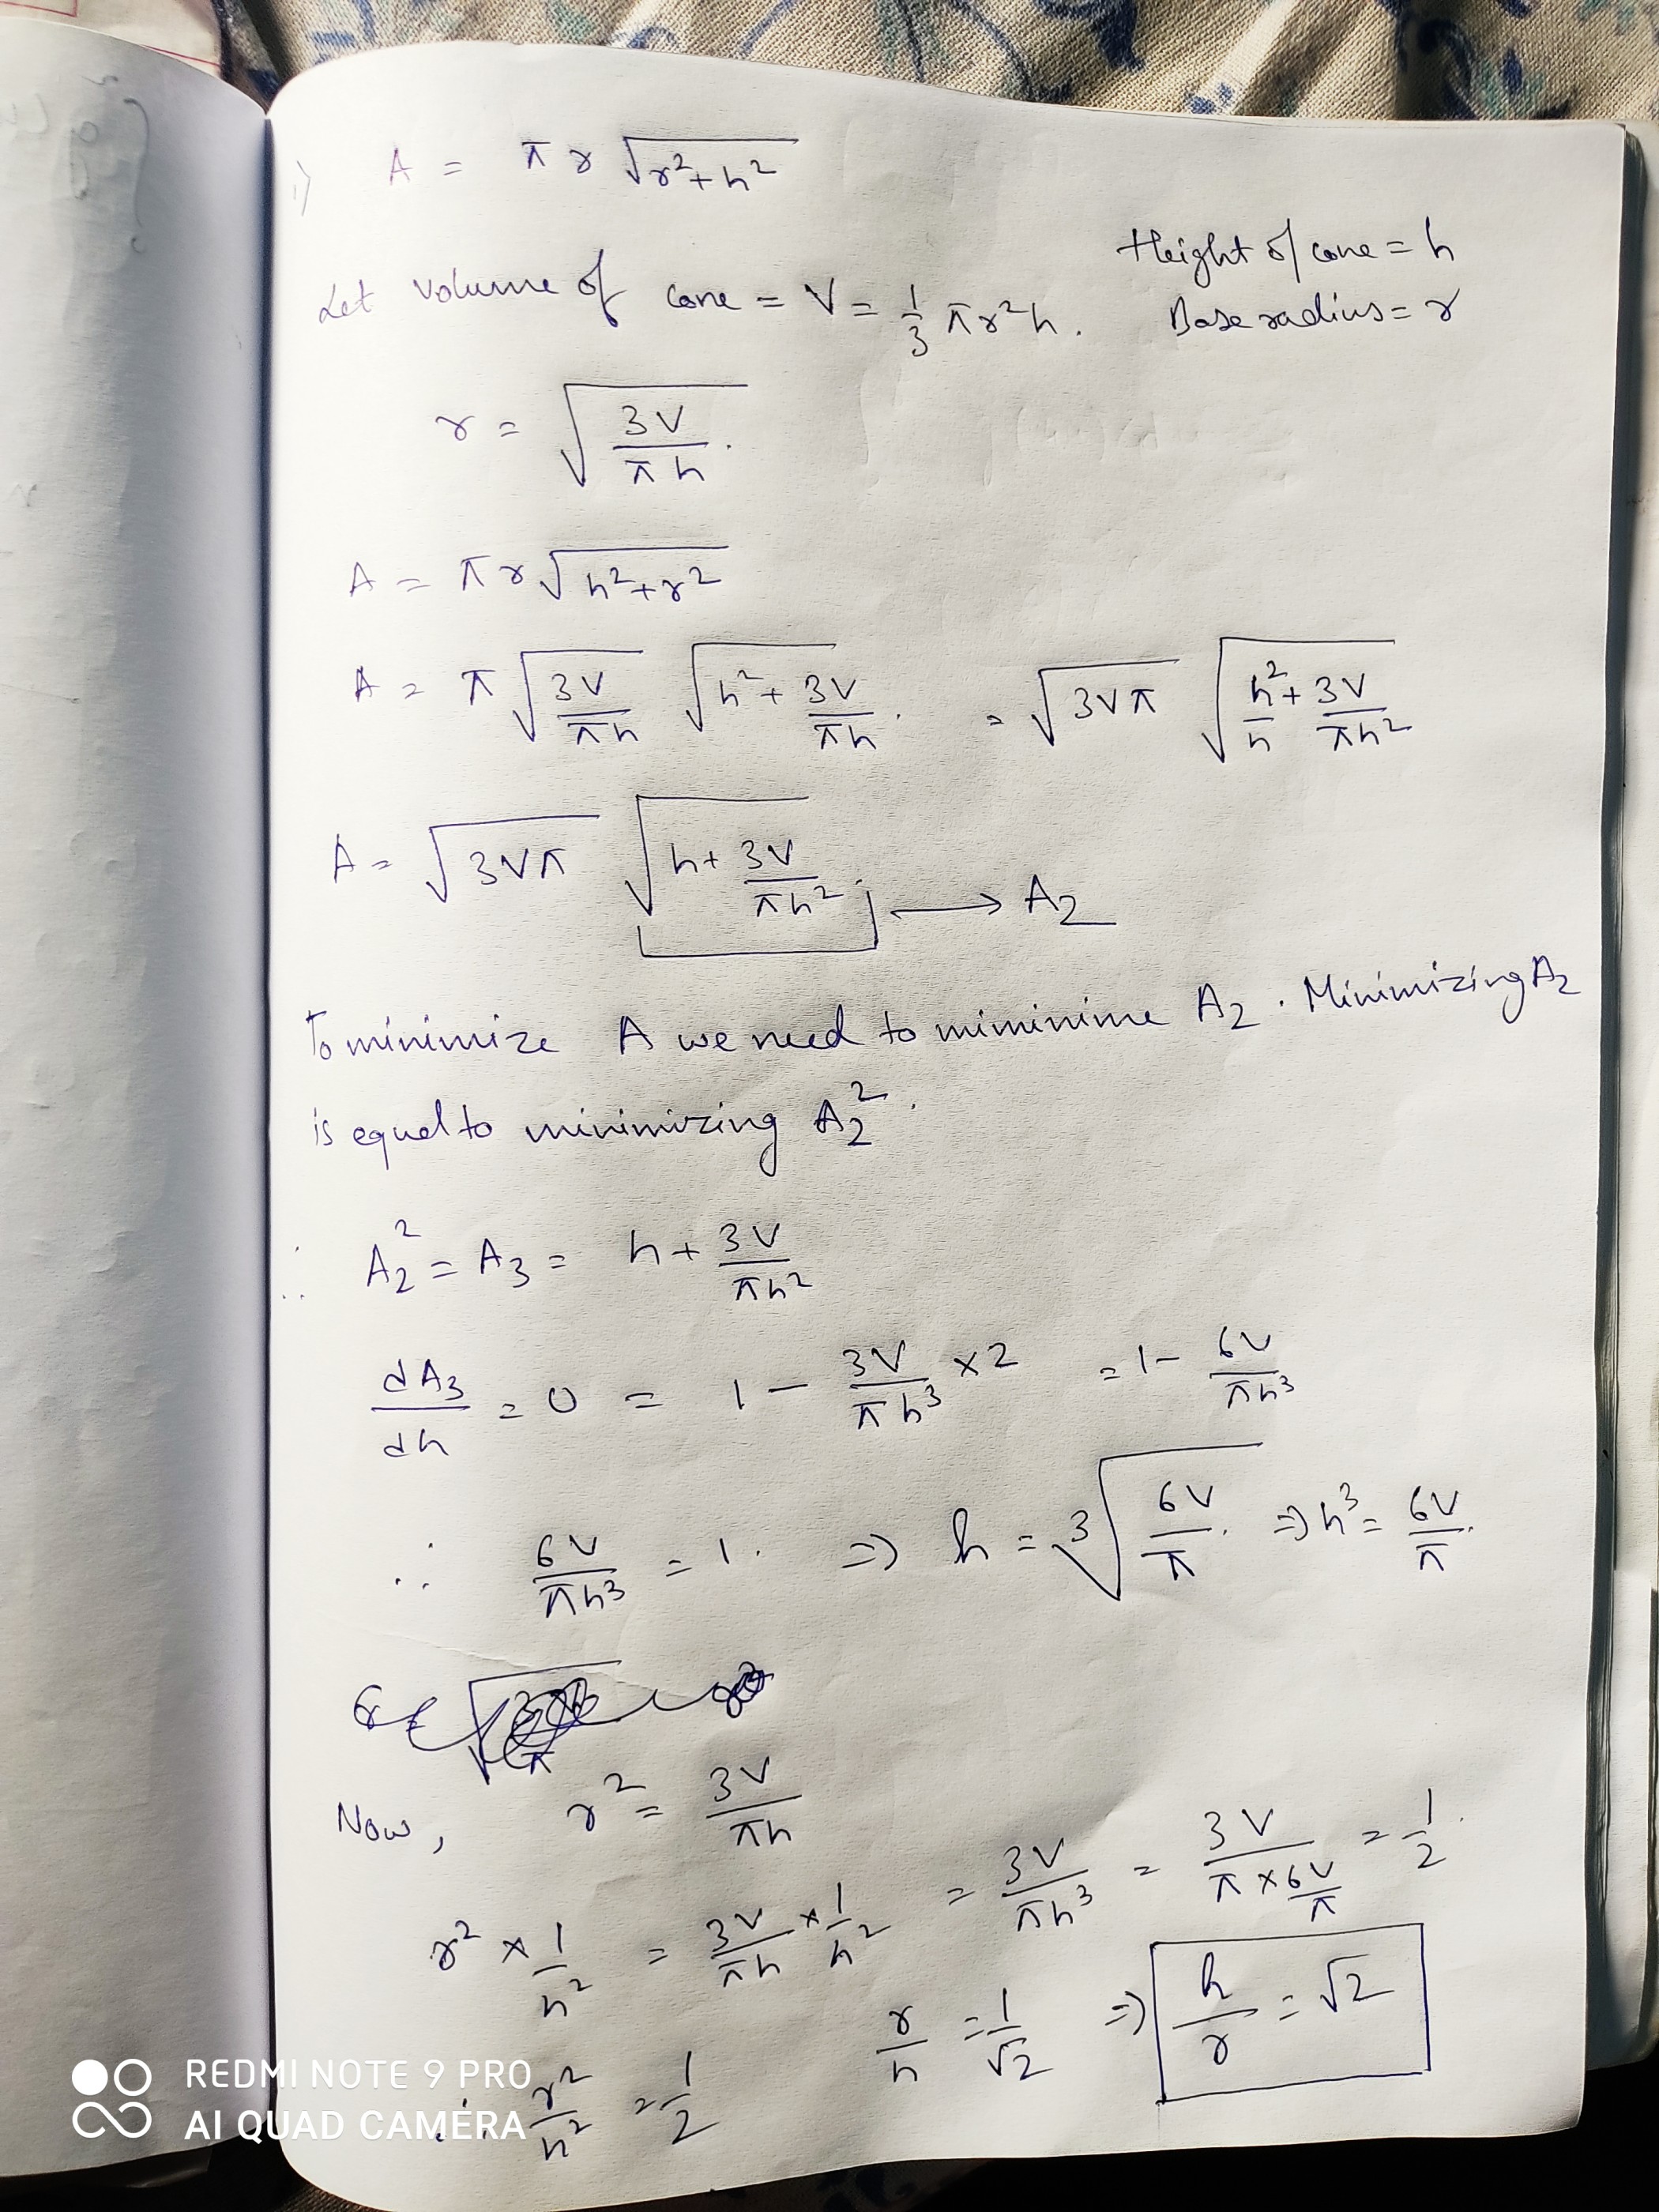 1) A = π r √(r²+h²)
Height of cone = h
Let volume of cone = V = 1/3 π r² h. Base radius = r
r = √(3V/πh).
A = π r √(h²+r²)
A = π √(3V/πh) √(h²+3V/πh). = √(3Vπ) √(h²/h+3V/πh²)
A = √(3Vπ) √(h+3V/πh²). → A₂
To minimize A we need to miminime A₂. Minimizing A₂
is equal to minimizing A₂².
∴ A₂² = A₃ = h + 3V/πh²
dA₃/dh = 0 = 1 - 3V/πh³ × 2 = 1 - 6V/πh³
∴ 6V/πh³ = 1. ⇒ h = ³√(6V/π). ⇒ h³ = 6V/π.
Now, r² = 3V/πh
r² × 1/h² = 3V/πh × 1/h² = 3V/πh³ = 3V/(π × 6V/π) = 1/2.
∴ r²/h² = 1/2 r/h = 1/√2 ⇒ h/r = √2
REDMI NOTE 9 PRO
AI QUAD CAMERA